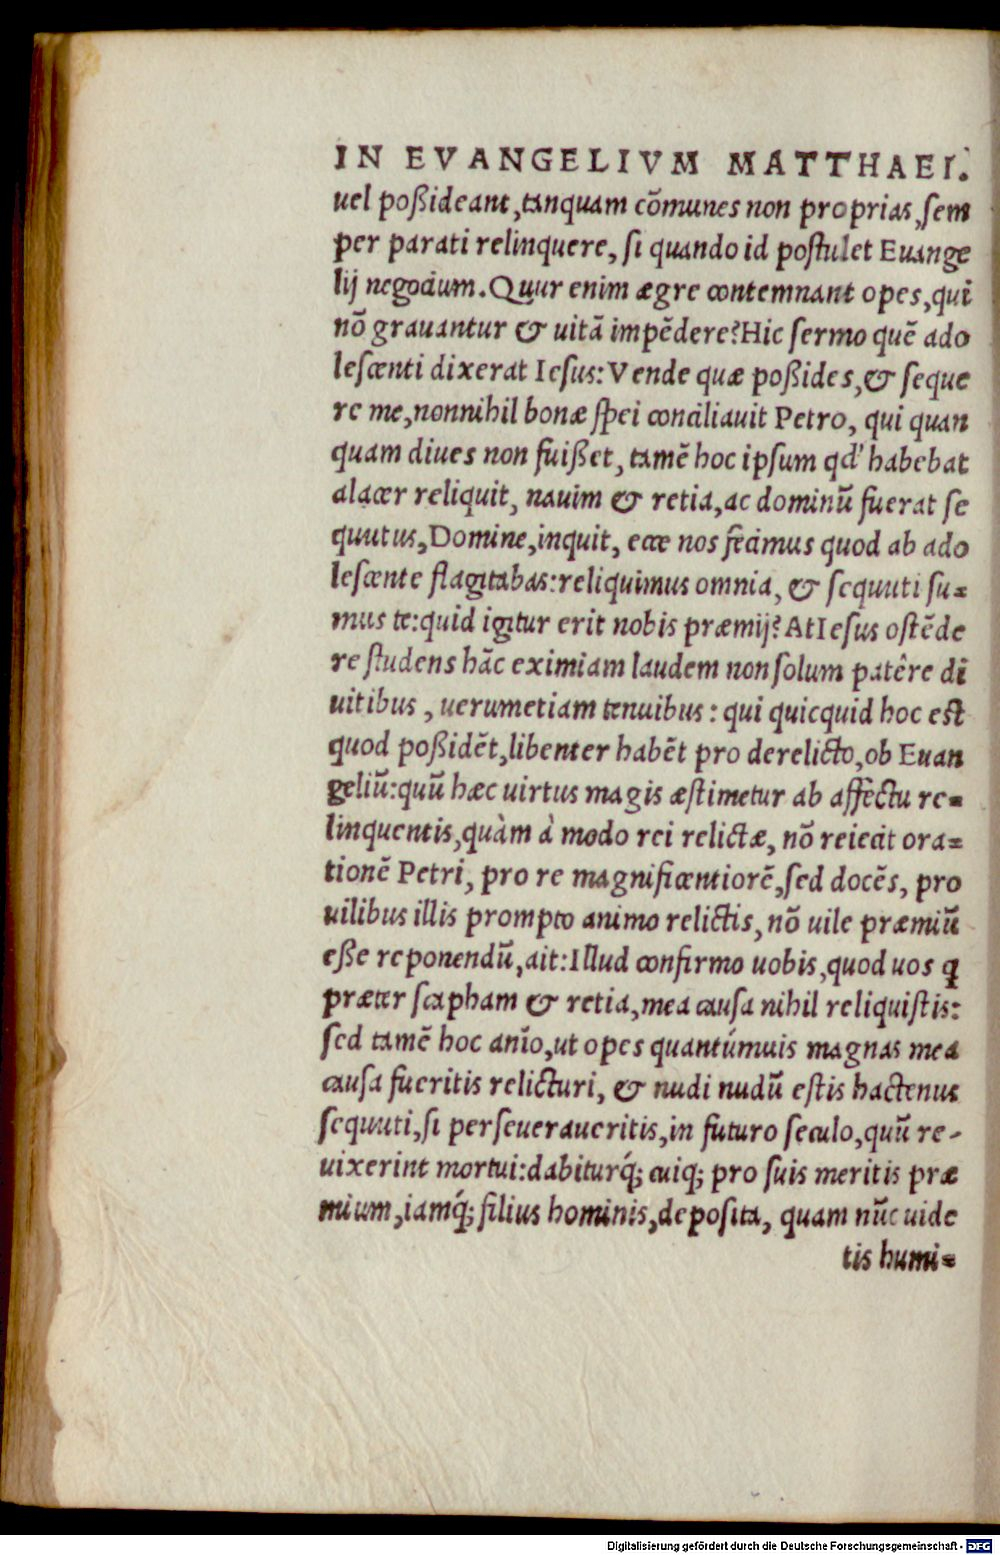 IN EVANGELIVM MATTHAEI.
uel poßideant, tanquam cõmunes non proprias, sem
per parati relinquere, si quando id postulet Euange
lij negocium. Quur enim ægre contemnant opes, qui
nõ grauantur & uitã impẽdere? Hic sermo quẽ ado
lescenti dixerat Iesus: Vende quæ poßides, & seque
re me, nonnihil bonæ spei conciliauit Petro, qui quan
quam diues non fuißet, tamẽ hoc ipsum qd' habebat
alacer reliquit, nauim & retia, ac dominũ fuerat se
quutus, Domine, inquit, ecce nos fecimus quod ab ado
lescente flagitabas: reliquimus omnia, & sequuti su-
mus te: quid igitur erit nobis præmij? At Iesus ostẽde
re studens hãc eximiam laudem non solum patêre di
uitibus, uerumetiam tenuibus: qui quicquid hoc est
quod poßidẽt, libenter habẽt pro derelicto, ob Euan
geliũ: quũ hæc uirtus magis æstimetur ab affectu re-
linquentis, quàm à modo rei relictæ, nõ reiecit ora-
tionẽ Petri, pro re magnificentiorẽ, sed docẽs, pro
uilibus illis prompto animo relictis, nõ uile præmiũ
eße reponendũ, ait: Illud confirmo uobis, quod uos ꝗ
præter scapham & retia, mea causa nihil reliquistis:
sed tamẽ hoc anĩo, ut opes quantúmuis magnas mea
causa fueritis relicturi, & nudi nudũ estis hactenus
sequuti, si perseueraueritis, in futuro seculo, quũ re-
uixerint mortui: dabiturq́; cuiq; pro suis meritis præ
mium, iamq́; filius hominis, deposita, quam nũc uide
tis humi-
Digitalisierung gefördert durch die Deutsche Forschungsgemeinschaft - DFG